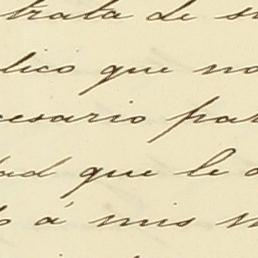 trata de s
lico que no
cesario par
dad que le d
á mis